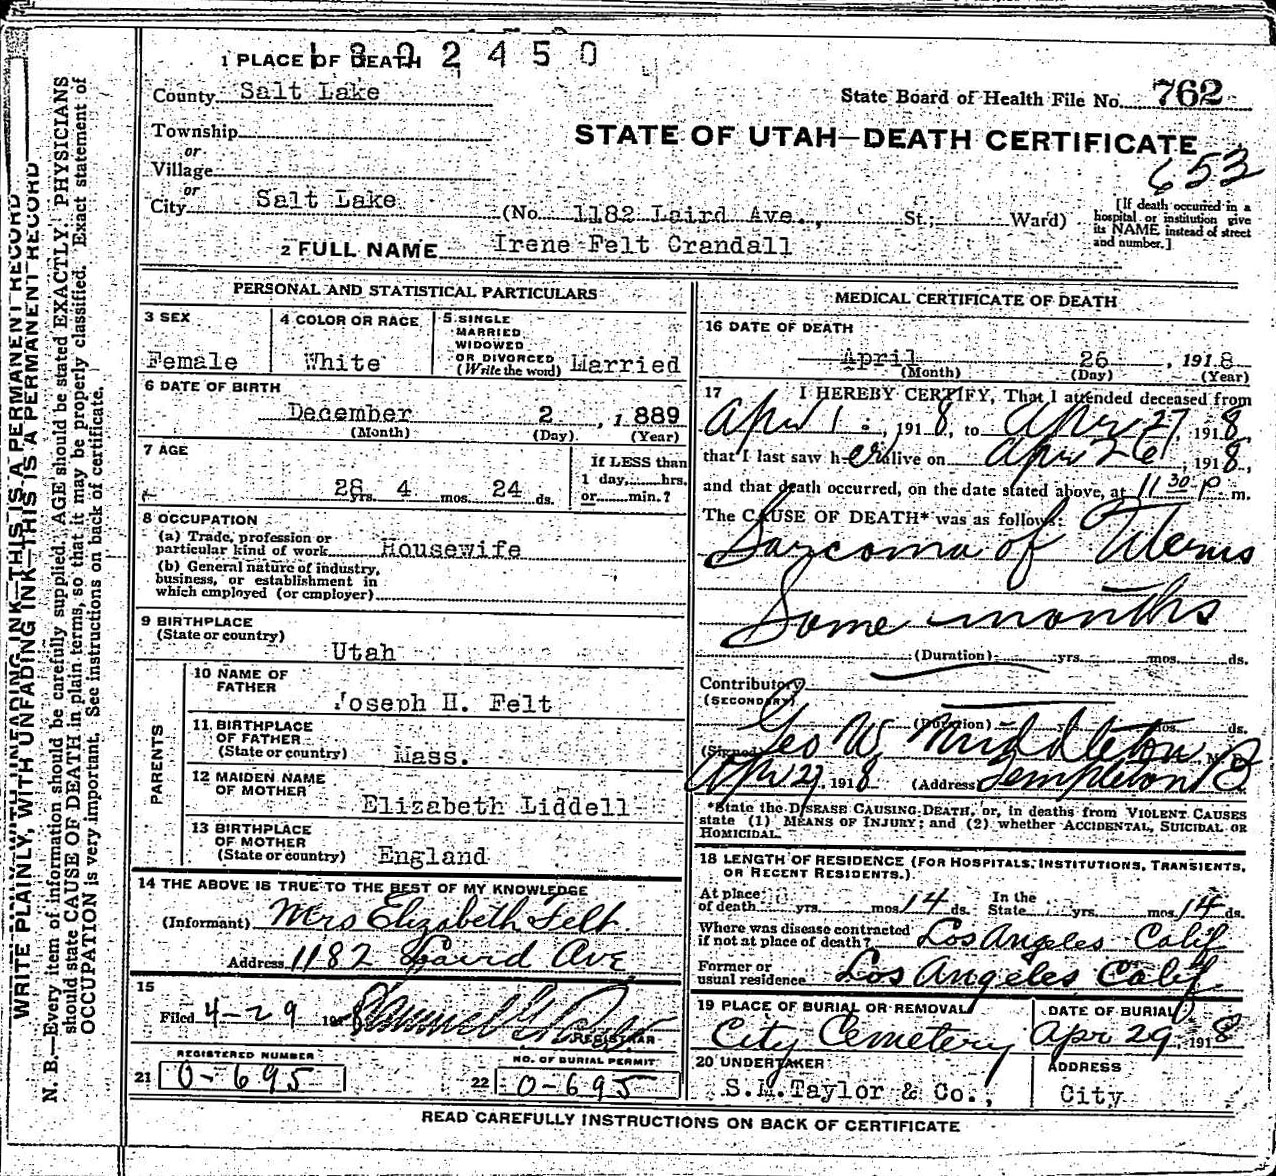 1 PLACE OF DEATH 1802450
County Salt Lake
State Board of Health File No. 762
Township
or
STATE OF UTAH—DEATH CERTIFICATE
Village
653
or
City Salt Lake (No. 1182 Laird Ave., St.; Ward)
[If death occurred in a
hospital or institution give
its NAME instead of street
and number.]
2 FULL NAME Irene Felt Crandall
PERSONAL AND STATISTICAL PARTICULARS
3 SEX
Female
4 COLOR OR RACE
White
5 SINGLE
MARRIED
WIDOWED
OR DIVORCED
(Write the word) Married
6 DATE OF BIRTH
December 2, 1889
(Month) (Day) (Year)
7 AGE
28 yrs. 4 mos. 24 ds.
If LESS than
1 day, hrs.
or min.?
8 OCCUPATION
(a) Trade, profession or
particular kind of work Housewife
(b) General nature of industry,
business, or establishment in
which employed (or employer)
9 BIRTHPLACE
(State or country)
Utah
PARENTS
10 NAME OF
FATHER
Joseph H. Felt
11 BIRTHPLACE
OF FATHER
(State or country) Mass.
12 MAIDEN NAME
OF MOTHER
Elizabeth Liddell
13 BIRTHPLACE
OF MOTHER
(State or country) England
14 THE ABOVE IS TRUE TO THE BEST OF MY KNOWLEDGE
(Informant) Mrs Elizabeth Felt.
Address 1182 Laird Ave
15
Filed 4-29 1918
REGISTRAR
REGISTERED NUMBER
21 0-695
NO. OF BURIAL PERMIT
22 0-695
MEDICAL CERTIFICATE OF DEATH
16 DATE OF DEATH
April 26, 1918
(Month) (Day) (Year)
17 I HEREBY CERTIFY, That I attended deceased from
Apr 1, 1918, to Apr 27, 1918
that I last saw her alive on Apr 26, 1918,
and that death occurred, on the date stated above, at 11 30 P m.
The CAUSE OF DEATH* was as follows:
Sarcoma of Uterus
Some months
(Duration) yrs. mos. ds.
Contributory
(SECONDARY)
(Duration) mos. ds.
(Signed) Geo W. Middleton M. D.
Apr 27, 1918 (Address) Templeton B
*State the DISEASE CAUSING DEATH, or, in deaths from VIOLENT CAUSES
state (1) MEANS OF INJURY; and (2) whether ACCIDENTAL, SUICIDAL OR
HOMICIDAL.
18 LENGTH OF RESIDENCE (FOR HOSPITALS, INSTITUTIONS, TRANSIENTS,
OR RECENT RESIDENTS.)
At place of death yrs. mos. 14 ds. In the State yrs. mos. 14 ds.
Where was disease contracted
if not at place of death? Los Angeles Calif
Former or
usual residence Los Angeles Calif
19 PLACE OF BURIAL OR REMOVAL
City Cemetery
DATE OF BURIAL
Apr 29, 1918
20 UNDERTAKER
S.M. Taylor & Co.,
ADDRESS
City
READ CAREFULLY INSTRUCTIONS ON BACK OF CERTIFICATE
WRITE PLAINLY, WITH UNFADING INK—THIS IS A PERMANENT RECORD
N. B.—Every item of information should be carefully supplied. AGE should be stated EXACTLY. PHYSICIANS
should state CAUSE OF DEATH in plain terms, so that it may be properly classified. Exact statement of
OCCUPATION is very important. See instructions on back of certificate.